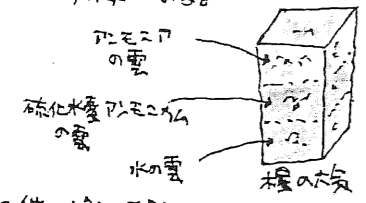 アンモニア
の雲
硫化水素アンモニウム
の雲
水の雲
木星の大気